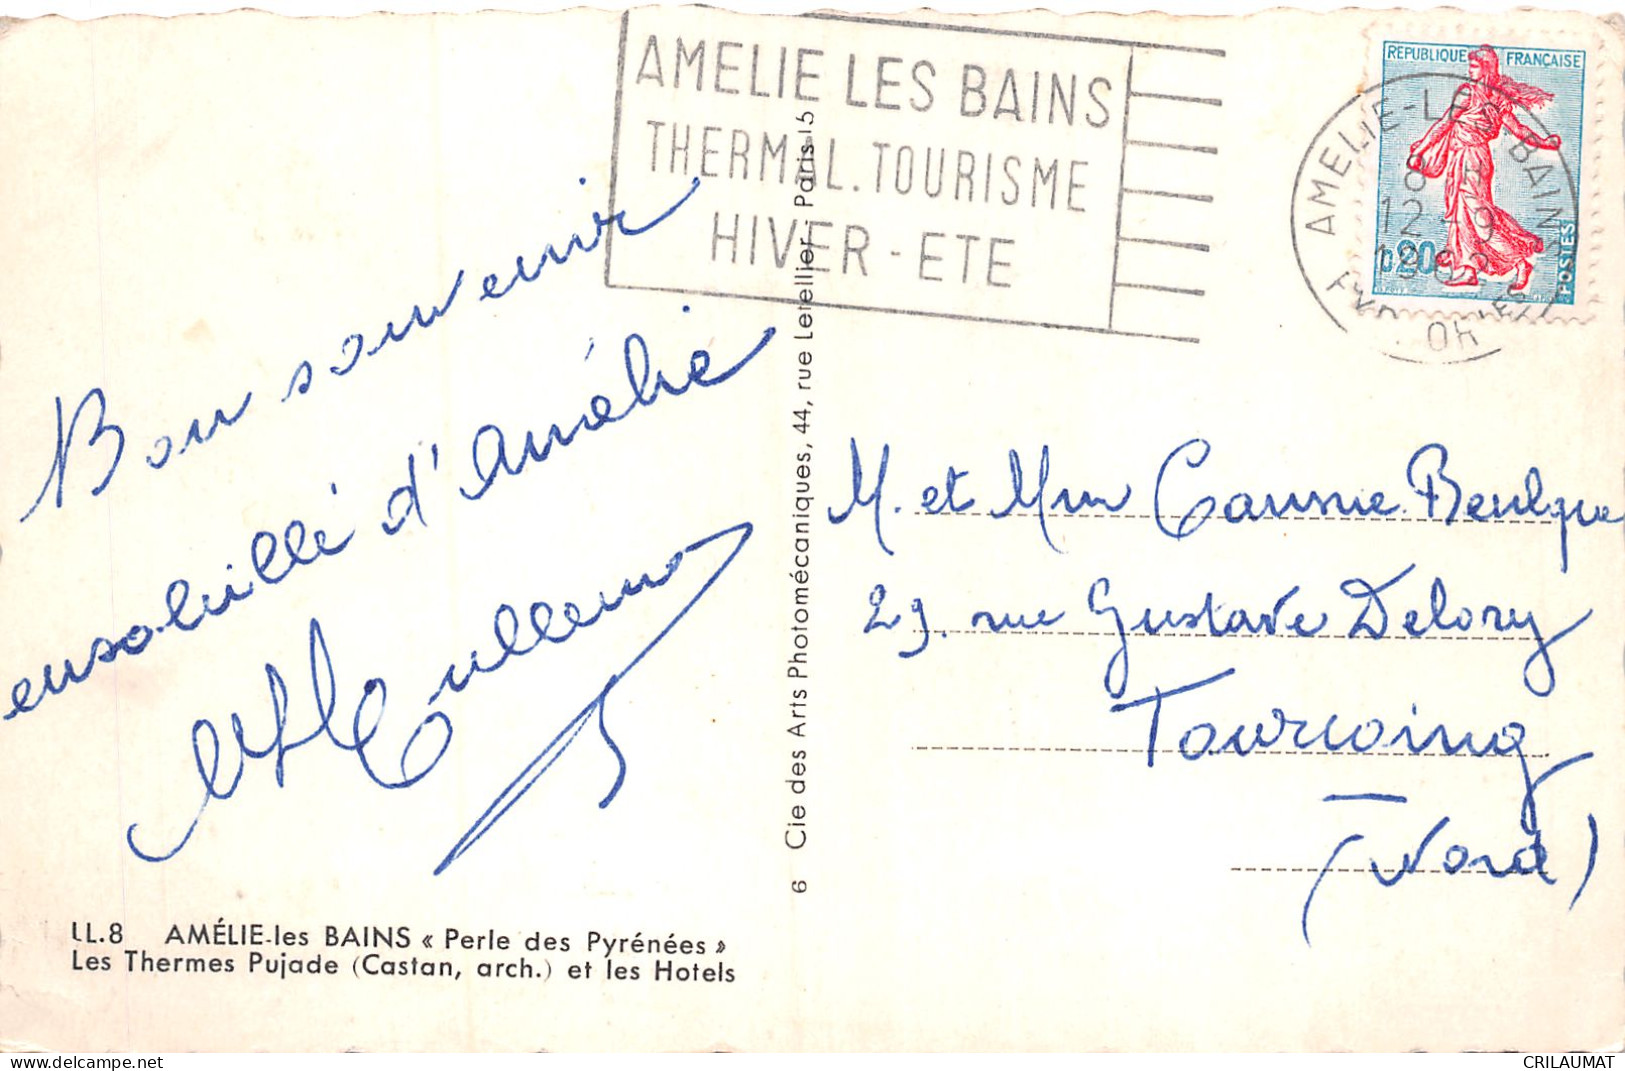 AMELIE LES BAINS
THERMAL.TOURISME
HIVER-ETE
REPUBLIQUE FRANÇAISE
0,20
POSTES
AMELIE-LES-BAINS
8 H
12-9
PYR. ORLES
Bon souvenir
ensoleillé d'Amélie
M. et Mme
29. rue Gustave Delory
Tourcoing
(Nord)
6 Cie des Arts Photomécaniques, 44, rue Letellier, Paris-15
LL.8 AMÉLIE-les BAINS « Perle des Pyrénées »
Les Thermes Pujade (Castan, arch.) et les Hotels
delcampe.net
CRILAUMAT